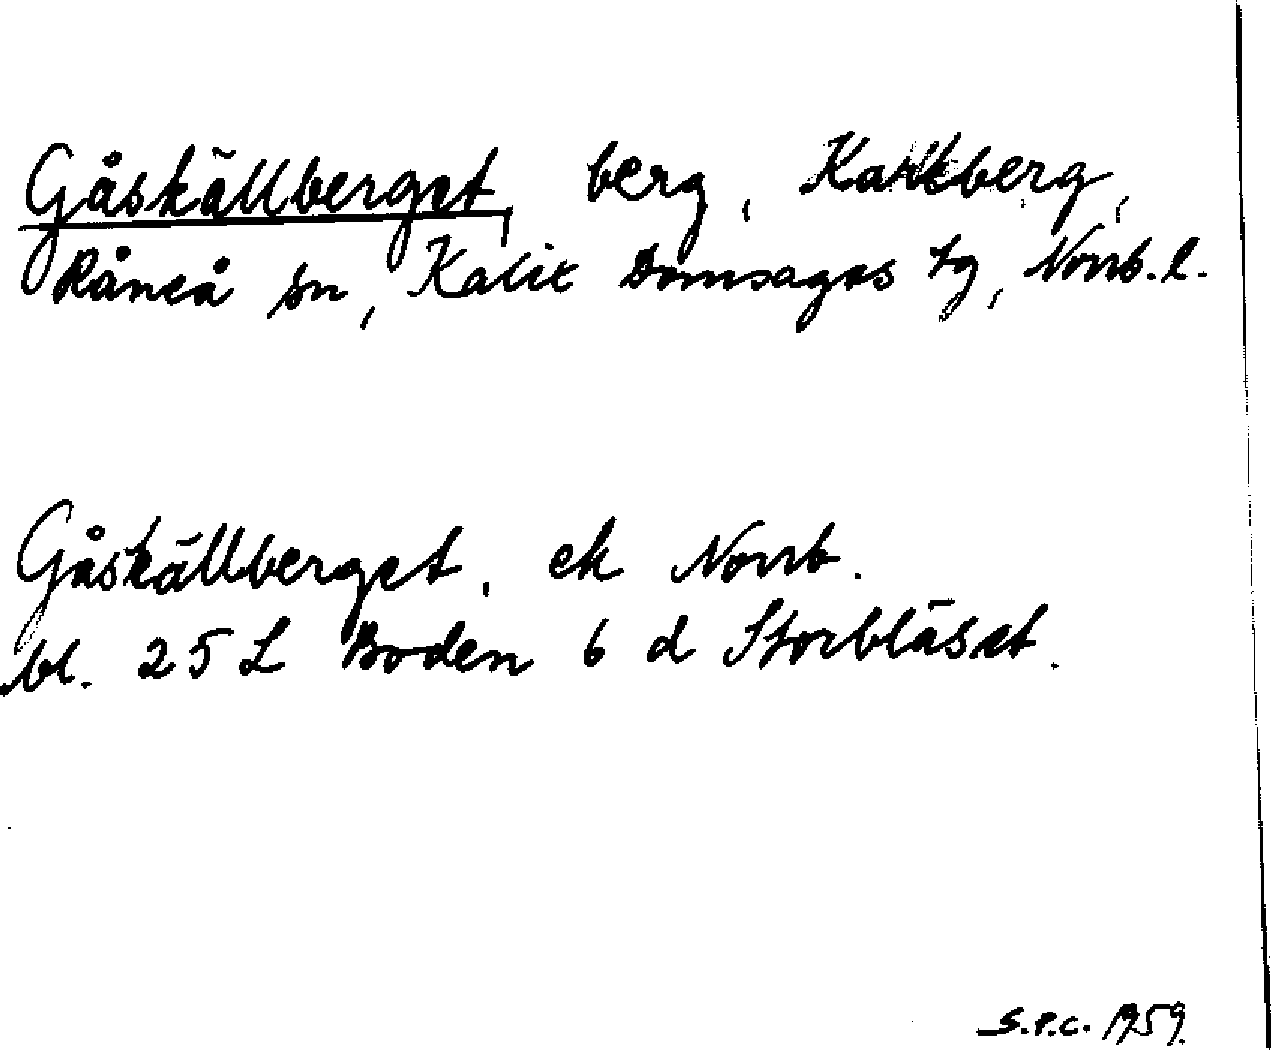 Gåskällberget, berg, Kallberg,
Råneå sn, Kalix Domsagas tg, Norrb. l.
Gåskällberget, ek Norrb.
bl. 25 L Boden 6 d Storblåset.
S.P.C. 1959.